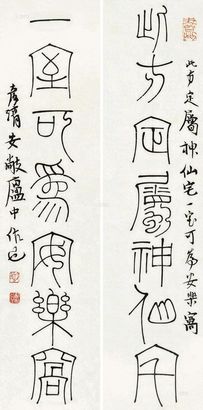 此方定屬神仙宅一室可爲安樂窩
此方定屬神仙宅
一室可爲安樂窩
安敞廬中作